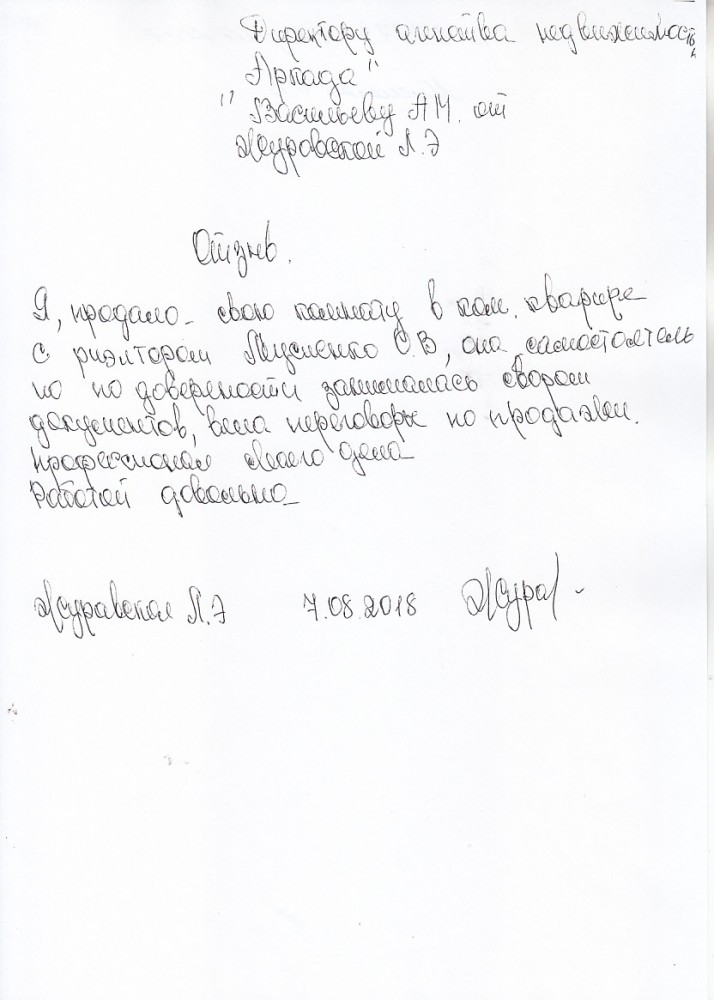 Директору агенства недвижимость
Аркада"
" Васильеву А.М. от
Журавской Л.Э
Отзыв.
Я, продало свою комнату в ком. квартире
с риэлтором Мусиенко О.В, она самостоятель
но по доверености занималась сбором
документов, вела переговоры по продажи.
профессионал своего дела
Работой довольна
Журавская Л.Э 7.08.2018 Жура